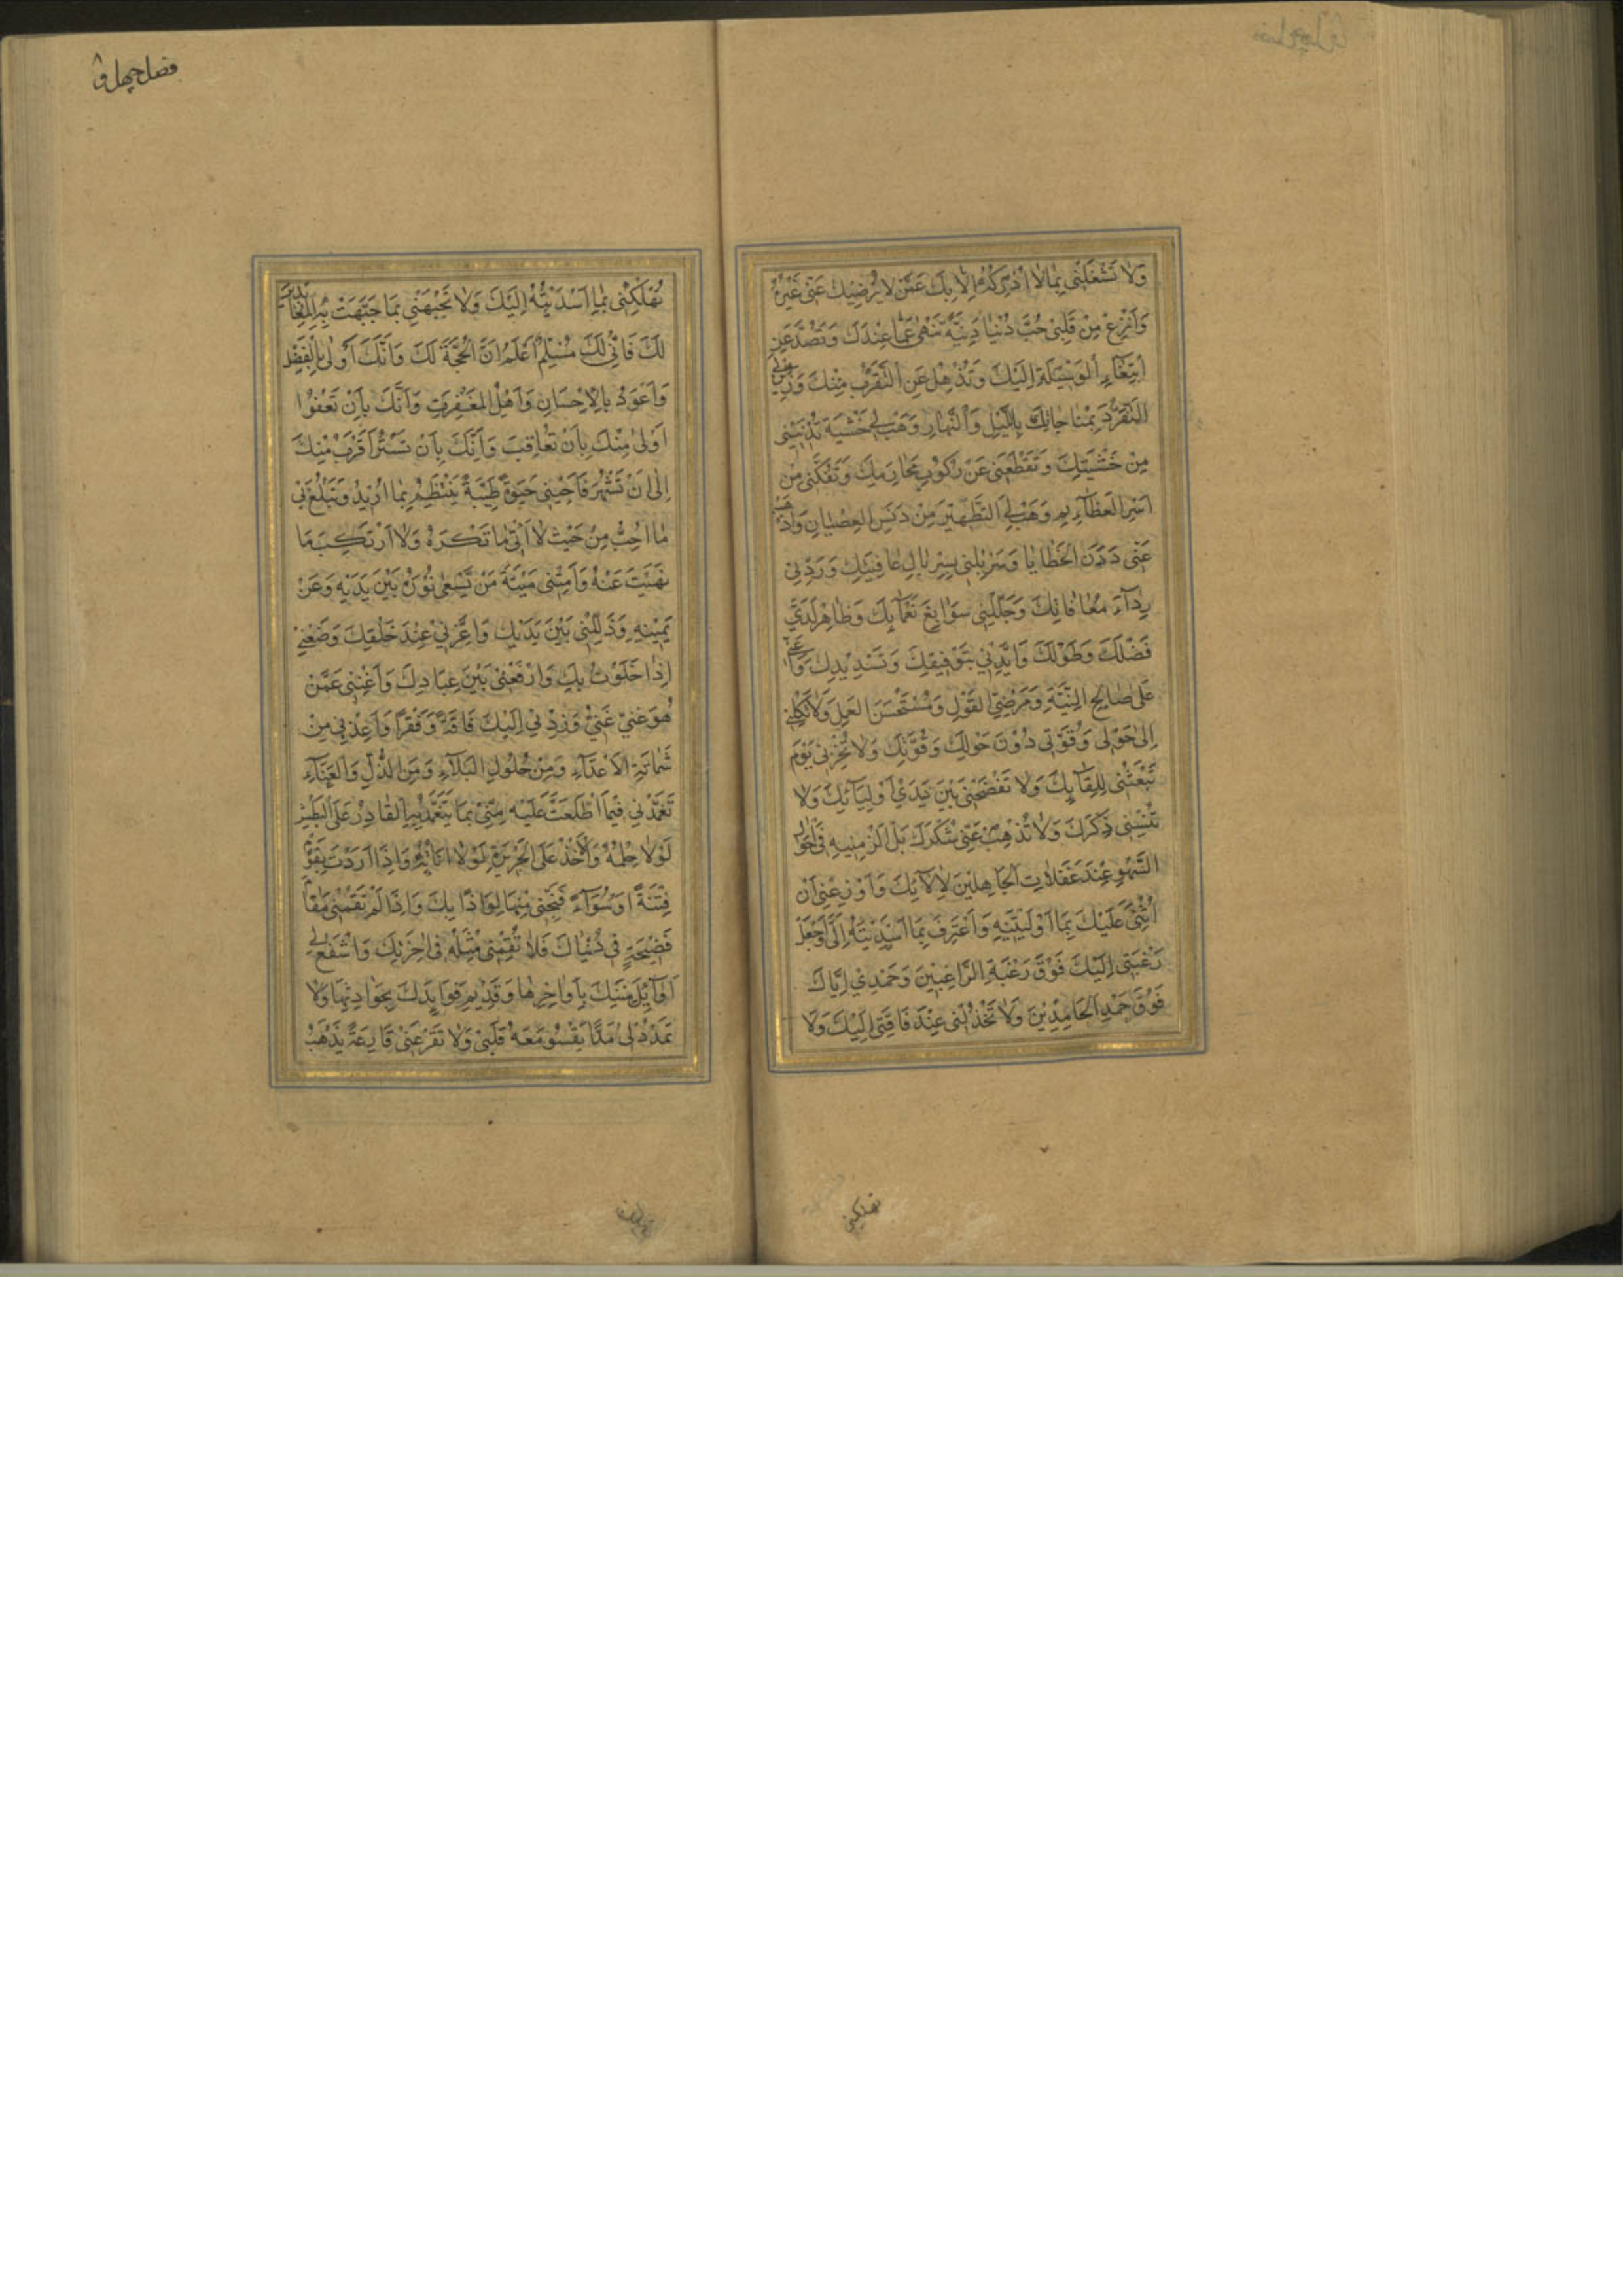 وَلَا تَشْغَلْنِي بِمَا لَا أُدْرِكُهُ إِلَّا بِكَ عَمَّنْ لَا يُرْضِيكَ عَنِّي غَيْرُهُ
وَانْزِعْ مِنْ قَلْبِي حُبَّ دُنْيَا دَنِيَّةٍ تَنْهَى عَمَّا عِنْدَكَ وَتَصُدُّ عَنِ
ابْتِغَاءِ الْوَسِيلَةِ إِلَيْكَ وَتُذْهِلُ عَنِ التَّقَرُّبِ مِنْكَ وَزَيِّنْ لِي
التَّفَرُّدَ بِمُنَاجَاتِكَ بِاللَّيْلِ وَالنَّهَارِ وَهَبْ لِي خَشْيَةً تُدْنِينِي
مِنْ خَشْيَتِكَ وَتَقْطَعُنِي عَنْ رُكُوبِ مَحَارِمِكَ وَتَفُكَّنِي مِنْ
أَسْرِ الْعَظَائِمِ وَهَبْ لِي التَّطْهِيرَ مِنْ دَنَسِ الْعِصْيَانِ وَأَذْهِبْ
عَنِّي دَرَنَ الْخَطَايَا وَسَرْبِلْنِي بِسِرْبَالِ عَافِيَتِكَ وَرَدِّنِي
رِدَاءَ مُعَافَاتِكَ وَجَلِّلْنِي سَوَابِغَ نَعْمَائِكَ وَظَاهِرْ لَدَيَّ
فَضْلَكَ وَطَوْلَكَ وَأَيِّدْنِي بِتَوْفِيقِكَ وَتَسْدِيدِكَ وَأَعِنِّي
عَلَى صَالِحِ النِّيَّةِ وَمَرْضِيِّ الْقَوْلِ وَمُسْتَحْسَنِ الْعَمَلِ وَلَا تَكِلْنِي
إِلَى حَوْلِي وَقُوَّتِي دُونَ حَوْلِكَ وَقُوَّتِكَ وَلَا تُخْزِنِي يَوْمَ
تَبْعَثُنِي لِلِقَائِكَ وَلَا تَفْضَحْنِي بَيْنَ يَدَيْ أَوْلِيَائِكَ وَلَا
تُنْسِنِي ذِكْرَكَ وَلَا تُذْهِبْ عَنِّي شُكْرَكَ بَلْ أَلْزِمْنِيهِ فِي أَحْوَالِ
السَّهْوِ عِنْدَ غَفَلَاتِ الْجَاهِلِينَ لِآلَائِكَ وَأَوْزِعْنِي أَنْ
أُثْنِيَ عَلَيْكَ بِمَا أَوْلَيْتَنِيهِ وَأَعْتَرِفَ بِمَا أَسْدَيْتَهُ إِلَيَّ وَاجْعَلْ
رَغْبَتِي إِلَيْكَ فَوْقَ رَغْبَةِ الرَّاغِبِينَ وَحَمْدِي إِيَّاكَ
فَوْقَ حَمْدِ الْحَامِدِينَ وَلَا تَخْذُلْنِي عِنْدَ فَاقَتِي إِلَيْكَ وَلَا
تهلكني
فصل چهل و ۸
تُهْلِكْنِي بِمَا أَسْدَيْتُهُ إِلَيْكَ وَلَا تَجْبَهْنِي بِمَا جَبَهْتَ بِهِ الْمُعَانِدِينَ
لَكَ فَإِنِّي لَكَ مُسْلِمٌ أَعْلَمُ أَنَّ الْحُجَّةَ لَكَ وَأَنَّكَ أَوْلَى بِالْفَضْلِ
وَأَعْوَدُ بِالْإِحْسَانِ وَأَهْلُ الْمَغْفِرَةِ وَأَنَّكَ بِأَنْ تَعْفُوَا
أَوْلَى مِنْكَ بِأَنْ تُعَاقِبَ وَأَنَّكَ بِأَنْ تَسْتُرَ أَقْرَبُ مِنْكَ
إِلَى أَنْ تَشْهَرَ فَأَحْيِنِي حَيٰوةً طَيِّبَةً يَنْتَظِمُ بِمَا أُرِيدُ وَتَبْلُغُ بِي
مَا أُحِبُّ مِنْ حَيْثُ لَا آتِي مَا تَكْرَهُ وَلَا أَرْتَكِبُ مَا
نَهَيْتَ عَنْهُ وَأَمِتْنِي مَيْتَةَ مَنْ يَسْعَى نُورُهُ بَيْنَ يَدَيْهِ وَعَنْ
يَمِينِهِ وَذَلِّلْنِي بَيْنَ يَدَيْكَ وَأَعِزَّنِي عِنْدَ خَلْقِكَ وَضَعْنِي
إِذَا خَلَوْتُ بِكَ وَارْفَعْنِي بَيْنَ عِبَادِكَ وَأَغْنِنِي عَمَّنْ
هُوَ غَنِيٌّ عَنِّي وَزِدْنِي إِلَيْكَ فَاقَةً وَفَقْرًا وَأَعِذْنِي مِنْ
شَمَاتَةِ الْأَعْدَاءِ وَمِنْ حُلُولِ الْبَلَاءِ وَمِنَ الذُّلِّ وَالْعَنَاءِ
تَغَمَّدْنِي فِيمَا اطَّلَعْتَ عَلَيْهِ مِنِّي بِمَا يَتَغَمَّدُ بِهِ الْقَادِرُ عَلَى الْبَطْشِ
لَوْلَا حِلْمُهُ وَالْآخِذُ عَلَى الْجَرِيرَةِ لَوْلَا أَنَاتُهُ وَإِذَا أَرَدْتَ بِقَوْمٍ
فِتْنَةً أَوْ سُوءًا فَنَجِّنِي مِنْهَا لِوَاذًا بِكَ وَإِذَا لَمْ تُقِمْنِي مَقَامَ
فَضِيحَةٍ فِي دُنْيَاكَ فَلَا تُقِمْنِي مِثْلَهُ فِي آخِرَتِكَ وَاشْفَعْ لِي
أَوَائِلَ مِنَنِكَ بِأَوَاخِرِهَا وَقَدِيمَ فَوَائِدِكَ بِحَوَادِثِهَا وَلَا
تَمْدُدْ لِي مَدًّا يَقْسُو مَعَهُ قَلْبِي وَلَا تَقْرَعْنِي قَارِعَةً يَذْهَبُ